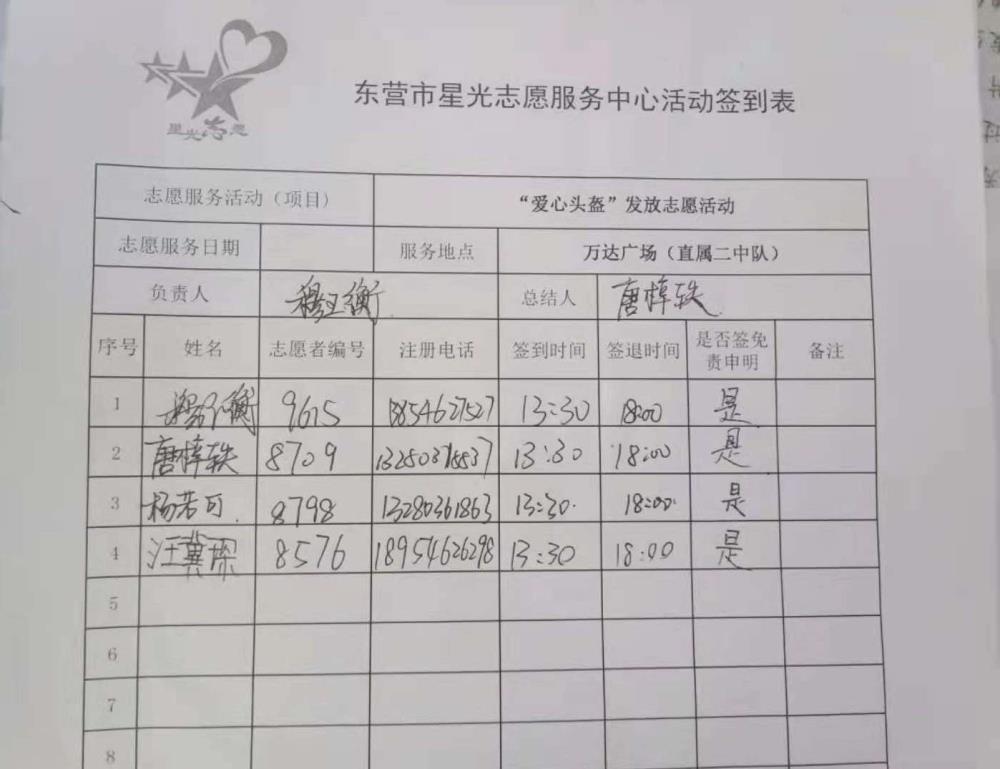 星光志愿
东营市星光志愿服务中心活动签到表
志愿服务活动（项目） “爱心头盔”发放志愿活动
志愿服务日期 服务地点 万达广场（直属二中队）
负责人 穆玉衡 总结人 唐梓轶
序号 姓名 志愿者编号 注册电话 签到时间 签退时间 是否签免责申明 备注
1 9615 13854627527 13:30 18:00 是
2 唐梓轶 8709 13:30 18:00 是
3 杨若可 8798 13280361863 13:30 18:00 是
4 汪冀琛 8576 18954626298 13:30 18:00 是
5
6
7
8